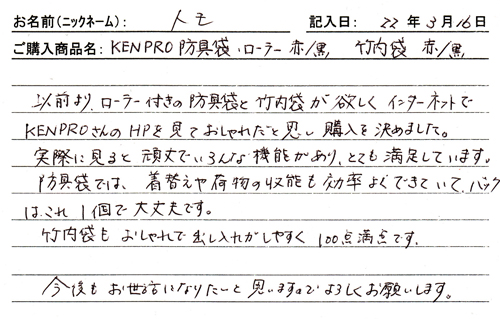 お名前(ニックネーム): トモ 記入日: 22 年 3月16日
ご購入商品名: KENPRO 防具袋 ローラー 赤/黒 竹内袋 赤/黒
以前より、ローラー付きの防具袋と竹内袋が欲しくインターネットで
KENPROさんのHPを見ておしゃれだと思い購入を決めました。
実際に見ると頑丈でいろんな機能があり、とても満足しています。
防具袋では、着替えや荷物の収能も効率よくできていて、バック
はこれ1個で大丈夫です。
竹内袋もおしゃれで出し入れがしやすく100点満点です。
今後もお世話になりたいと思いますのでよろしくお願いします。